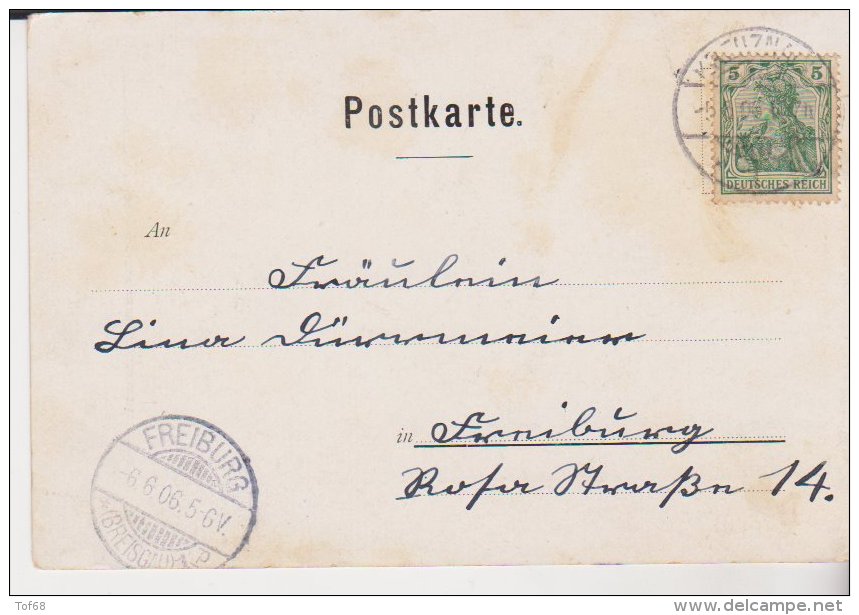 KREUZNACH
5 5
DEUTSCHES REICH
Postkarte.
An
Fräulein
Lina Dürrmeier
in Freiburg
Rosa Straße 14.
FREIBURG
-6.6.06.5-6V.
(BREISGAU)
Tof68
delcampe.net